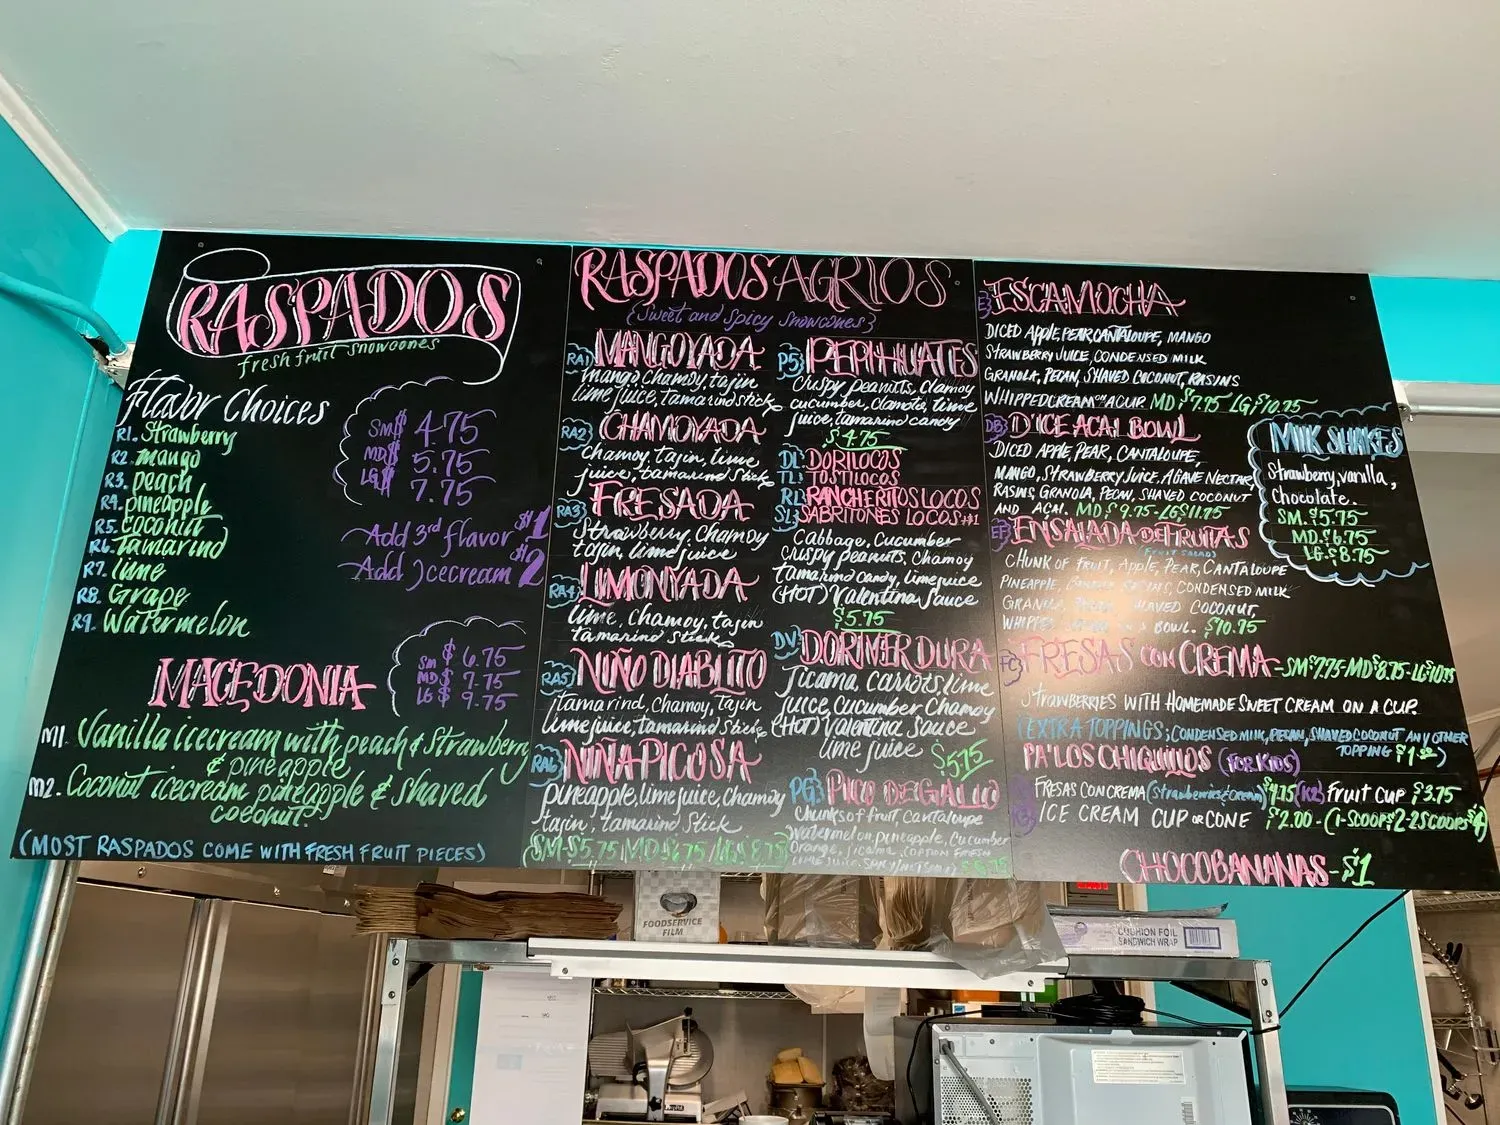 RASPADOS
fresh fruit snowcones
Flavor Choices
R1. Strawberry
R2. mango
R3. peach
R4. pineapple
R5. coconut
R6. Tamarind
R7. lime
R8. Grape
R9. Watermelon
SM $ 4.75
MD $ 5.75
LG $ 7.75
Add 3rd flavor $1
Add Icecream $2
MACEDONIA
SM $ 6.75
MD $ 7.75
LG $ 9.75
M1. Vanilla icecream with peach & strawberry
& pineapple
M2. Coconut icecream pineapple & shaved
coconut.
(MOST RASPADOS COME WITH FRESH FRUIT PIECES)
RASPADOS AGRIOS
{Sweet and Spicy Snowcones}
RA1 MANGOYADA
mango chamoy, tajin
lime juice, tamarind stick
RA2 CHAMOYADA
chamoy, tajin, lime
juice, tamarind stick
RA3 FRESADA
Strawberry, Chamoy
tajin, lime juice
RA4 LIMONYADA
lime, chamoy, tajin
tamarind stick
RA5 NIÑO DIABLITO
tamarind, chamoy, Tajin
lime juice, tamarind stick
RA6 NINA PICOSA
pineapple, lime juice, chamoy
tajin, tamarind stick
SM-$5.75 MD $6.75 LG $8.75
P5 PEPIHUATES
Crispy peanuts, Clamoy
cucumber, clamato, lime
juice, tamarind candy
$4.75
DL DORILOCOS
TL TOSTILOCOS
RL RANCHERITOS LOCOS
SL SABRITONES LOCOS +$1
Cabbage, Cucumber
crispy peanuts, Chamoy
tamarind candy, lime juice
(HOT) Valentina Sauce
$5.75
DV DORIVERDURA
Jicama, carrots, lime
juice, cucumber Chamoy
(HOT) Valentina Sauce
lime juice $5.75
PG PICO DE GALLO
Chunks of fruit, cantaloupe
watermelon, pineapple, Cucumber
Orange, jicama, (OPTION FRESH
LIME JUICE
E ESCAMOCHA
DICED APPLE, PEAR, CANTALOUPE, MANGO
STRAWBERRY JUICE, CONDENSED MILK
GRANOLA, PECAN, SHAVED COCONUT, RASINS
WHIPPED CREAM ON A CUP. MD $7.75 LG $10.75
DB D'ICE ACAI BOWL
DICED APPLE, PEAR, CANTALOUPE,
MANGO, STRAWBERRY JUICE, AGAVE NECTAR
RASINS, GRANOLA, PECAN, SHAVED COCONUT
AND ACAI. MD $9.75-LG $11.75
MILK SHAKES
Strawberry, vanilla,
Chocolate.
SM. $5.75
MD. $6.75
LG $8.75
EF ENSALADA DE FRUITAS
(FRUIT SALAD)
CHUNK OF FRUIT, APPLE, PEAR, CANTALOUPE
PINEAPPLE, CONDENSED MILK
SHAVED COCONUT,
BOWL. $10.75
FC FRESAS CON CREMA - SM $7.75-MD $8.75-LG $10.75
STRAWBERRIES WITH HOMEMADE SWEET CREAM ON A CUP.
(EXTRA TOPPINGS: CONDENSED MILK, PECAN, SHAVED COCONUT ANY OTHER
TOPPING $1.00)
PA'LOS CHIQUILLOS (FOR KIDS)
FRESAS CON CREMA (strawberries & cream) $4.75 (K2) FRUIT CUP $3.75
ICE CREAM CUP OR CONE $2.00 - (1-SCOOP $2-2 SCOOPS $4)
CHOCOBANANAS - $1
FOODSERVICE
FILM
CUSHION FOIL
SANDWICH WRAP